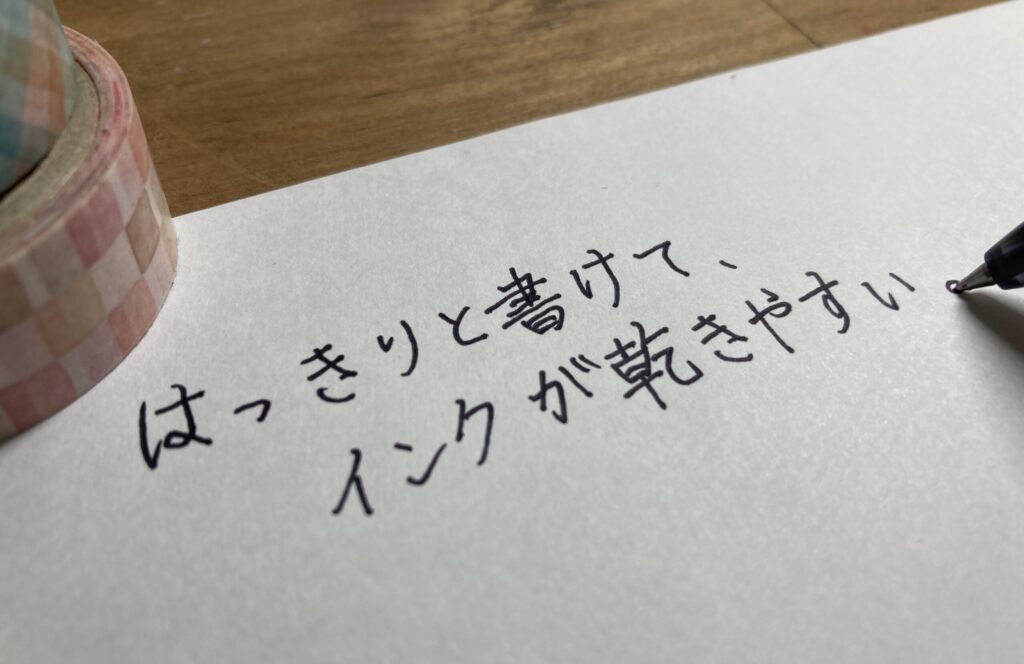 はっきりと書けて、
インクが乾きやすい。